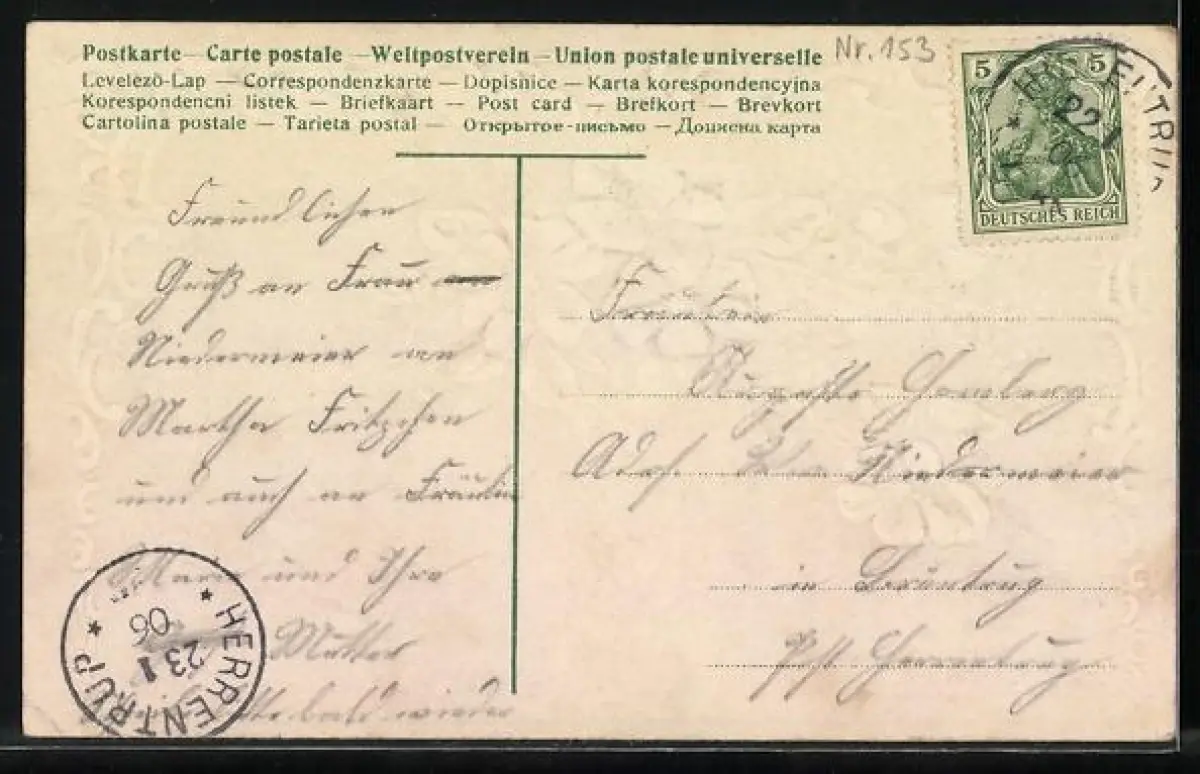 Postkarte — Carte postale — Weltpostverein — Union postale universelle
Levelező-Lap — Correspondenzkarte — Dopisnice — Karta korespondencyjna
Korespondencni listek — Briefkaart — Post card — Brefkort — Brevkort
Cartolina postale — Tarieta postal — Открытое-письмо — Дописна карта
Nr. 153
5 5
DEUTSCHES REICH
22
Freundlichen
Gruß an Frau
Niedermeier an
Martha Fritzchen
und auch an Fräulein
Marie und Ihre
Mutter
bald wieder
Fräulein
Auguste Homberg
Adr. Niedermeier
in
HERRENTRUP
23 1
06